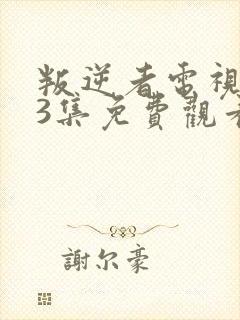 叛逆者電視
3集免費觀看
謝尔豪